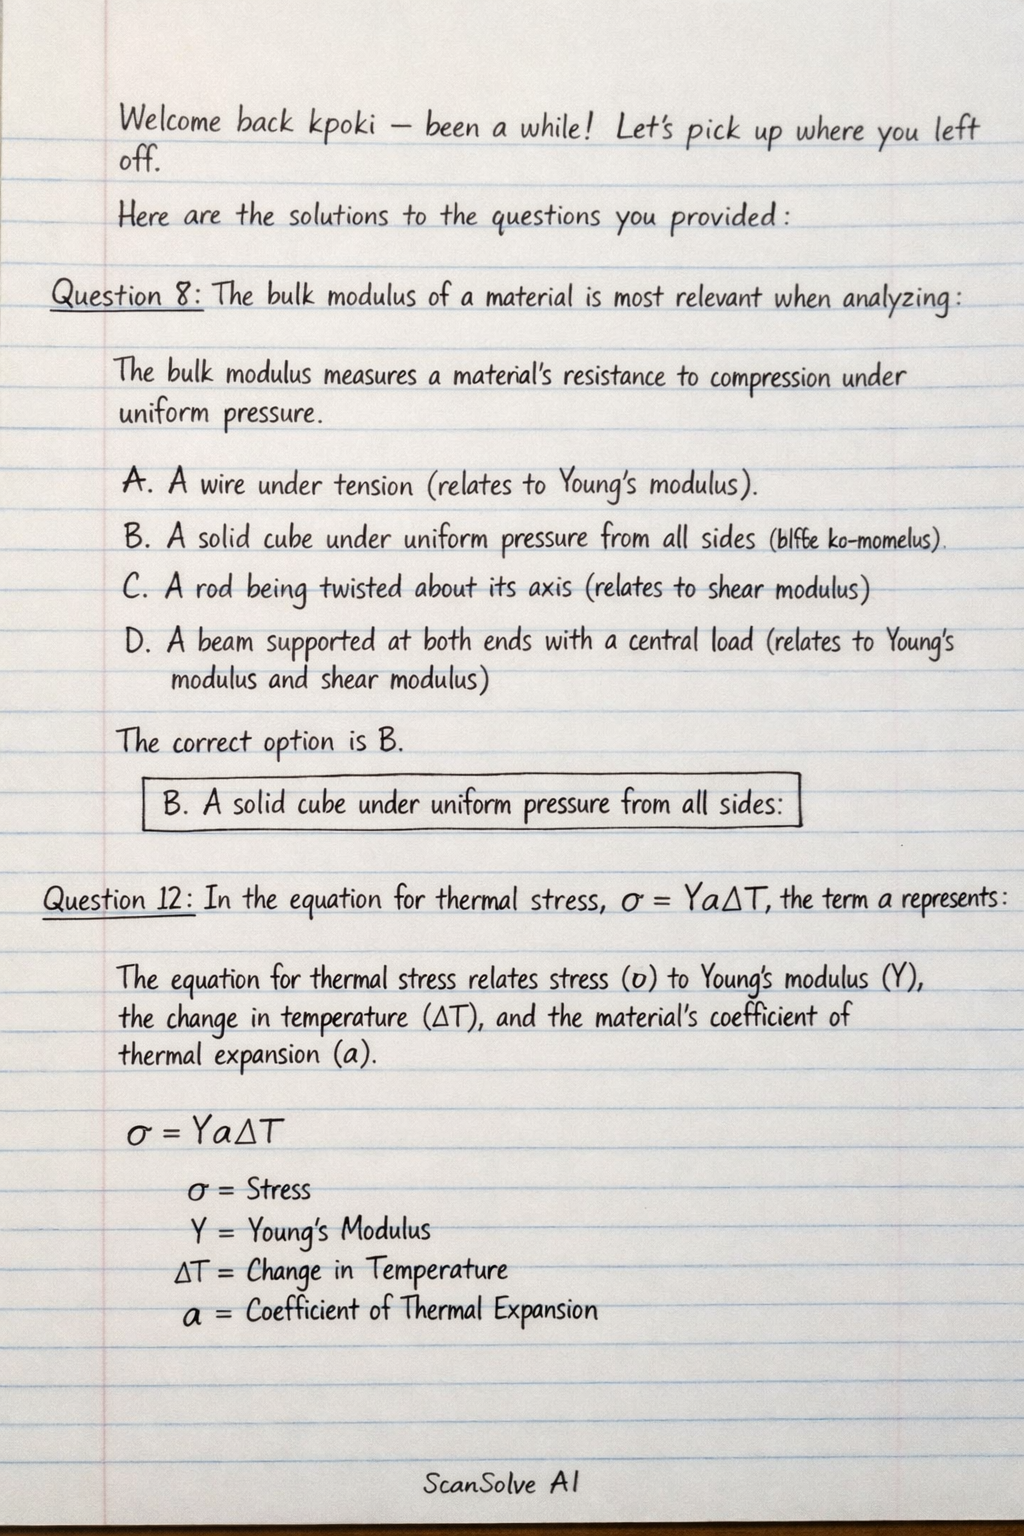 Welcome back kpoki – been a while! Let's pick up where you left
off.
Here are the solutions to the questions you provided:
Question 8: The bulk modulus of a material is most relevant when analyzing:
The bulk modulus measures a material's resistance to compression under
uniform pressure.
A. A wire under tension (relates to Young's modulus).
B. A solid cube under uniform pressure from all sides
C. A rod being twisted about its axis (relates to shear modulus)
D. A beam supported at both ends with a central load (relates to Young's
modulus and shear modulus)
The correct option is B.
B. A solid cube under uniform pressure from all sides:
Question 12: In the equation for thermal stress, σ = YaΔT, the term a represents:
The equation for thermal stress relates stress (σ) to Young's modulus (Y),
the change in temperature (ΔT), and the material's coefficient of
thermal expansion (a).
σ = YaΔT
σ = Stress
Y = Young's Modulus
ΔT = Change in Temperature
a = Coefficient of Thermal Expansion
ScanSolve AI